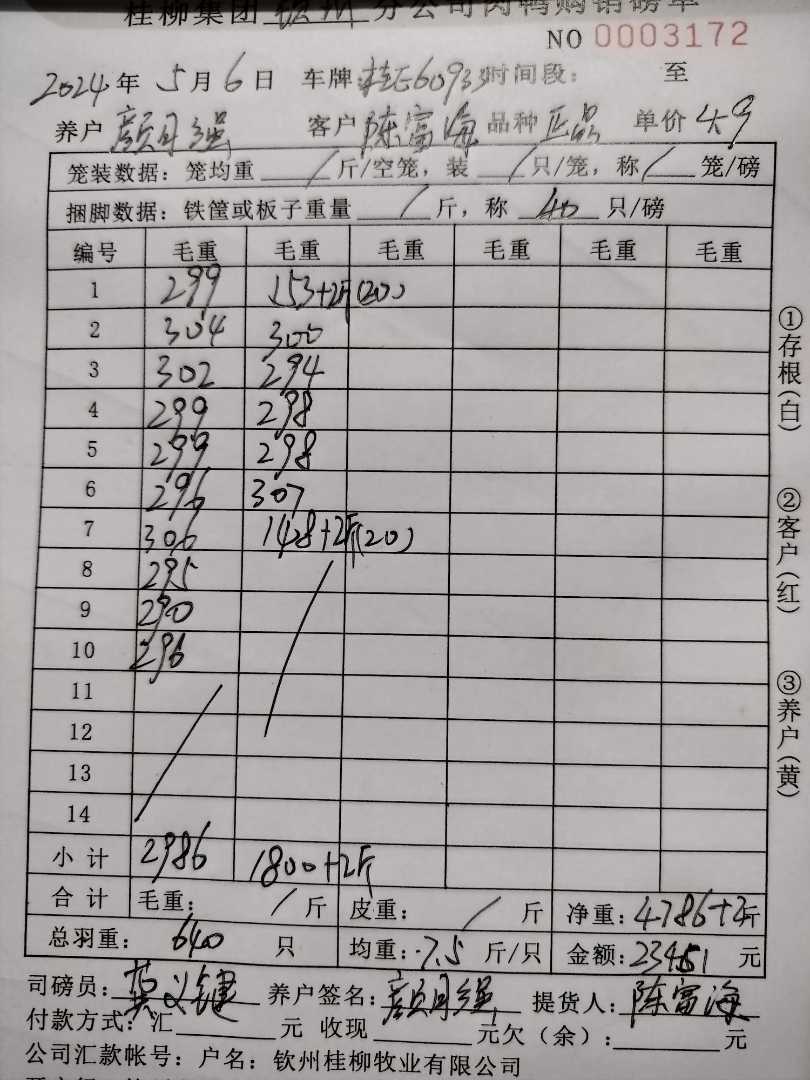 桂柳集团 钦州 分公司肉鸭购销磅单
NO 0003172
2024年 5月 6日 车牌:桂E60933 时间段: 至
养户 颜月强 客户 陈富海 品种 正品 单价 4.9
笼装数据: 笼均重 / 斤/空笼, 装 / 只/笼, 称 / 笼/磅
捆脚数据: 铁筐或板子重量 / 斤, 称 40 只/磅
编号 毛重 毛重 毛重 毛重 毛重 毛重
1 299 153+2斤(20)
2 304 300
3 302 294
4 299 298
5 299 298
6 296 307
7 306 148+2斤(20)
8 295
9 290
10 296
11
12
13
14
小计 2986 1800+2斤
合计 毛重: / 斤 皮重: / 斤 净重: 4786+2斤
总羽重: 640 只 均重: 7.5 斤/只 金额: 23451 元
司磅员: 养户签名: 颜月强 提货人: 陈富海
付款方式: 汇 元 收现 元欠(余): 元
公司汇款帐号: 户名: 钦州桂柳牧业有限公司
①存根(白)
②客户(红)
③养户(黄)